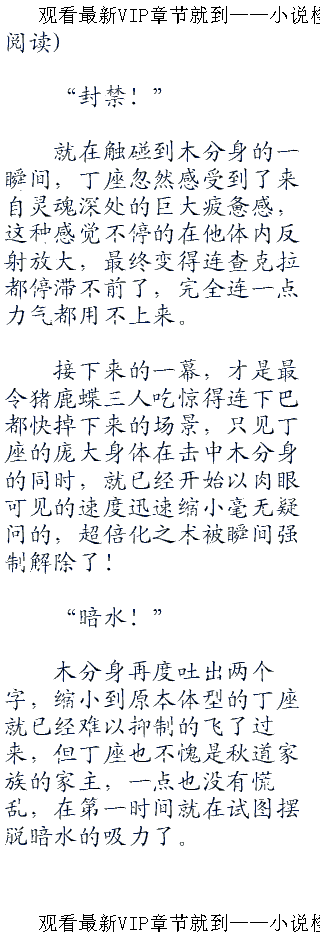 观看最新VIP章节就到——小说
阅读)
“封禁！”
就在触碰到木分身的一
瞬间，丁座忽然感受到了来
自灵魂深处的巨大疲惫感，
这种感觉不停的在他体内反
射放大，最终变得连查克拉
都停滞不前了，完全连一点
力气都用不上来。
接下来的一幕，才是最
令猪鹿蝶三人吃惊得连下巴
都快掉下来的场景，只见丁
座的庞大身体在击中木分身
的同时，就已经开始以肉眼
可见的速度迅速缩小毫无疑
问的，超倍化之术被瞬间强
制解除了！
“暗水！”
木分身再度吐出两个
字，缩小到原本体型的丁座
就已经难以抑制的飞了过
来，但丁座也不愧是秋道家
族的家主，一点也没有慌
乱，在第一时间就在试图摆
脱暗水的吸力了。
观看最新VIP章节就到——小说